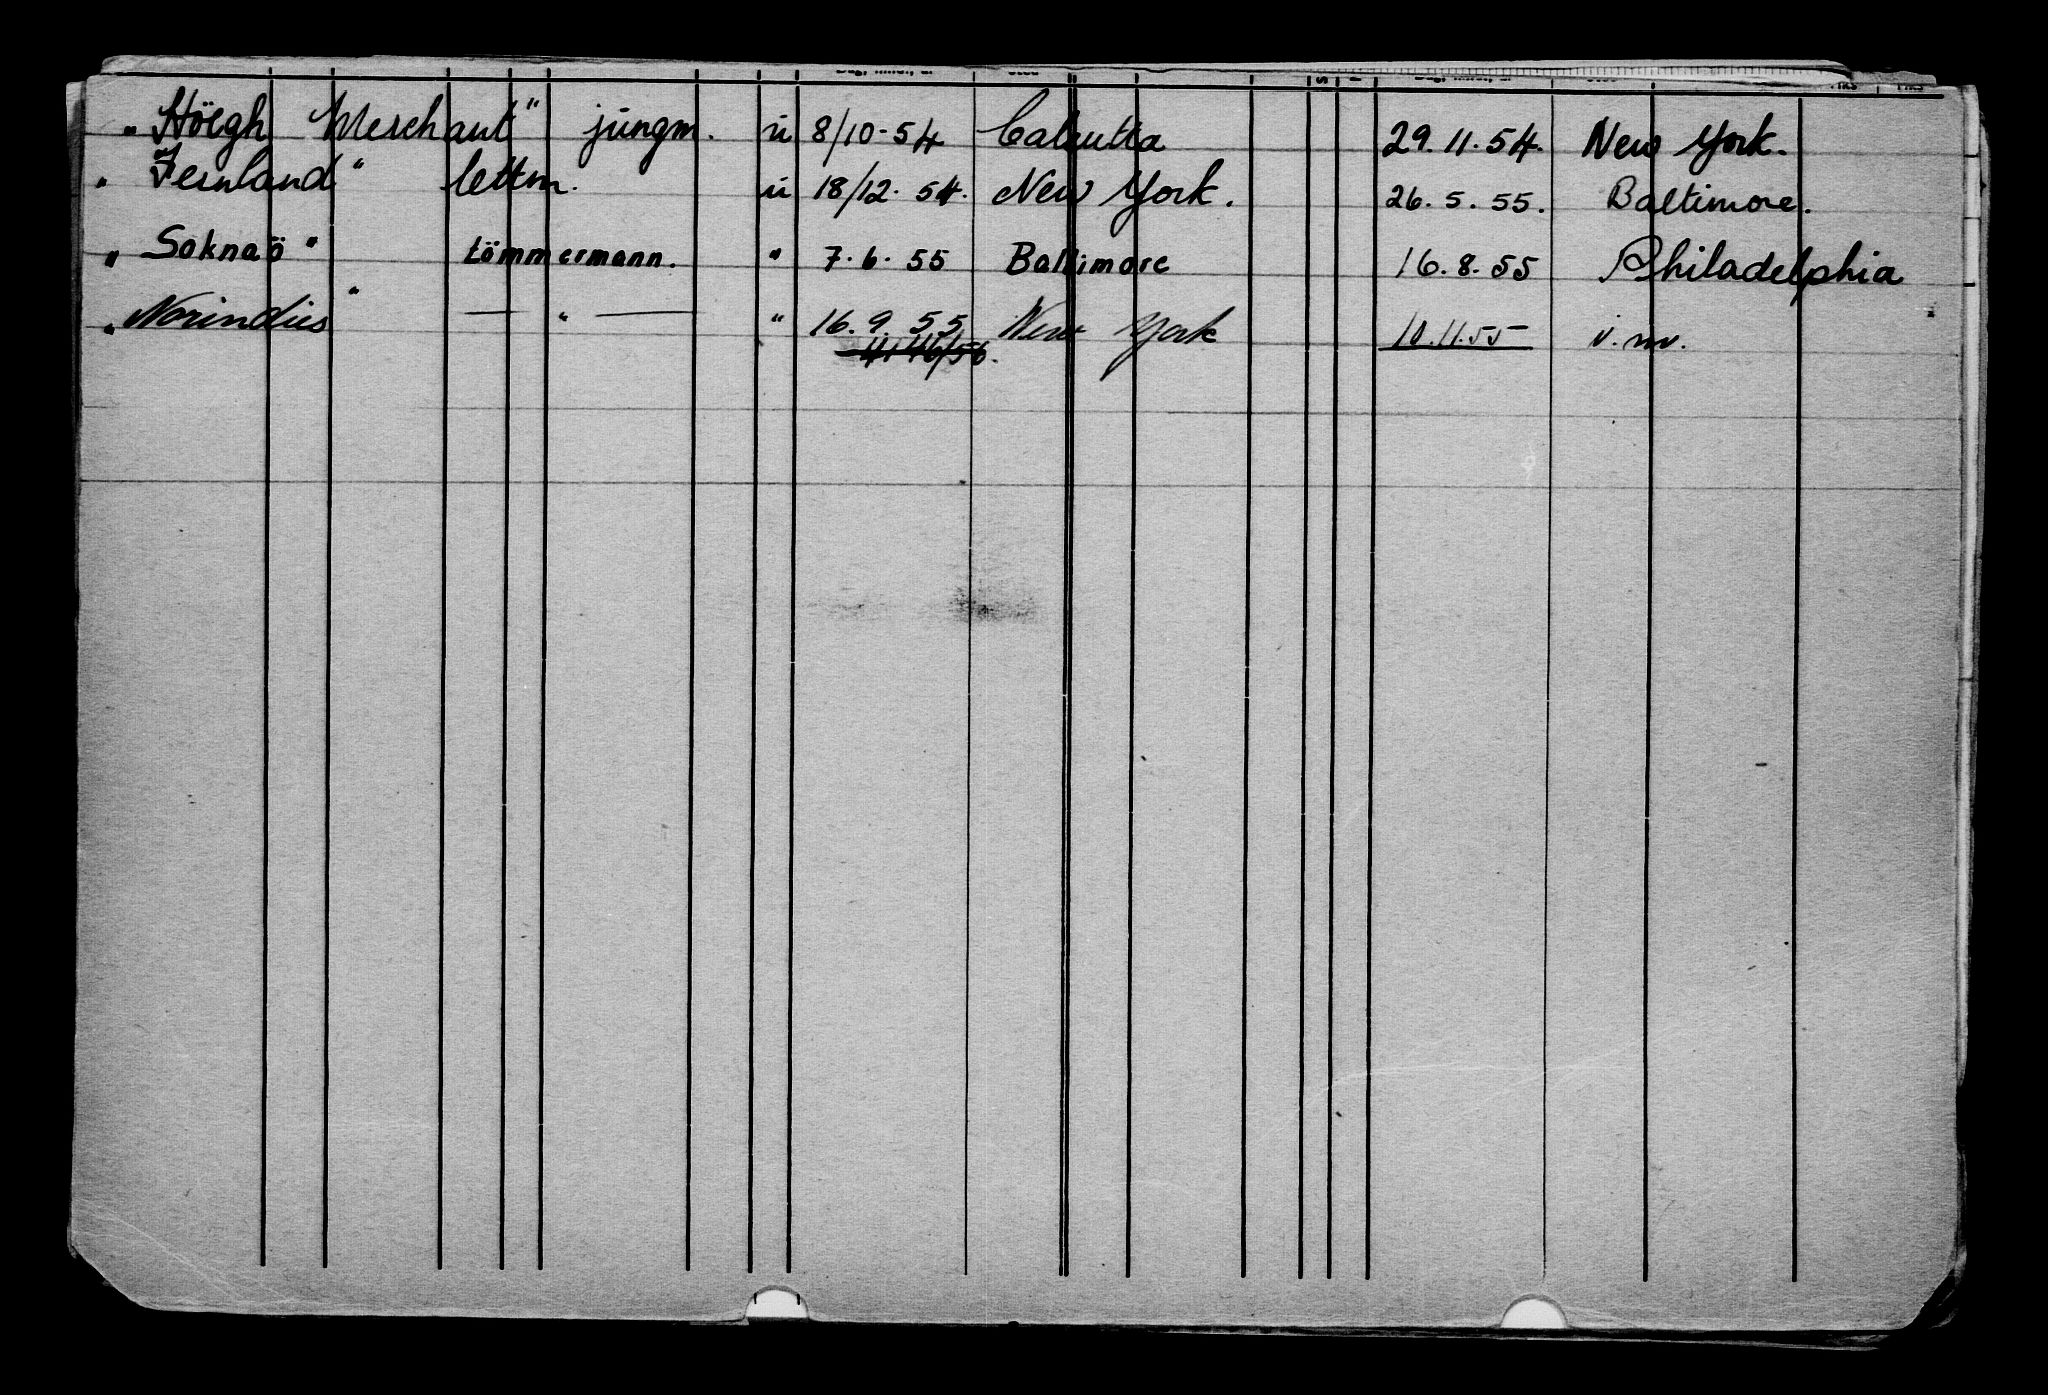 „ Höegh Merchant" jungm. u 8/10-54 Calcutta 29. 11. 54. New York.
„ Fernland" lettm. u 18/12. 54. New York. 26. 5. 55. Baltimore.
„ Soknaö" tömmermann. " 7. 6. 55 Baltimore 16. 8. 55 Philadelphia
„ Norindies" — " — " 16. 9. 55 New York 10.11.55